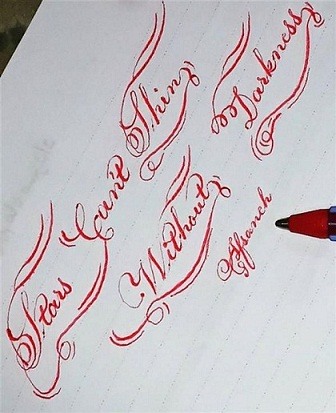 Stars Can't Shine
Without Darkness